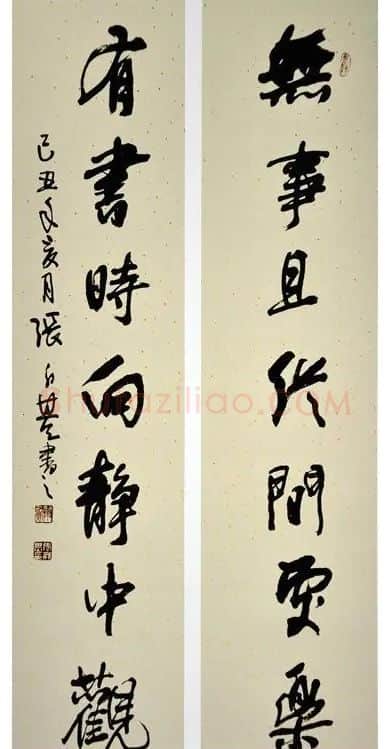 無事且從閒處樂
有書時向靜中觀
己丑年亥月張
書之
Shufaziliao.COM